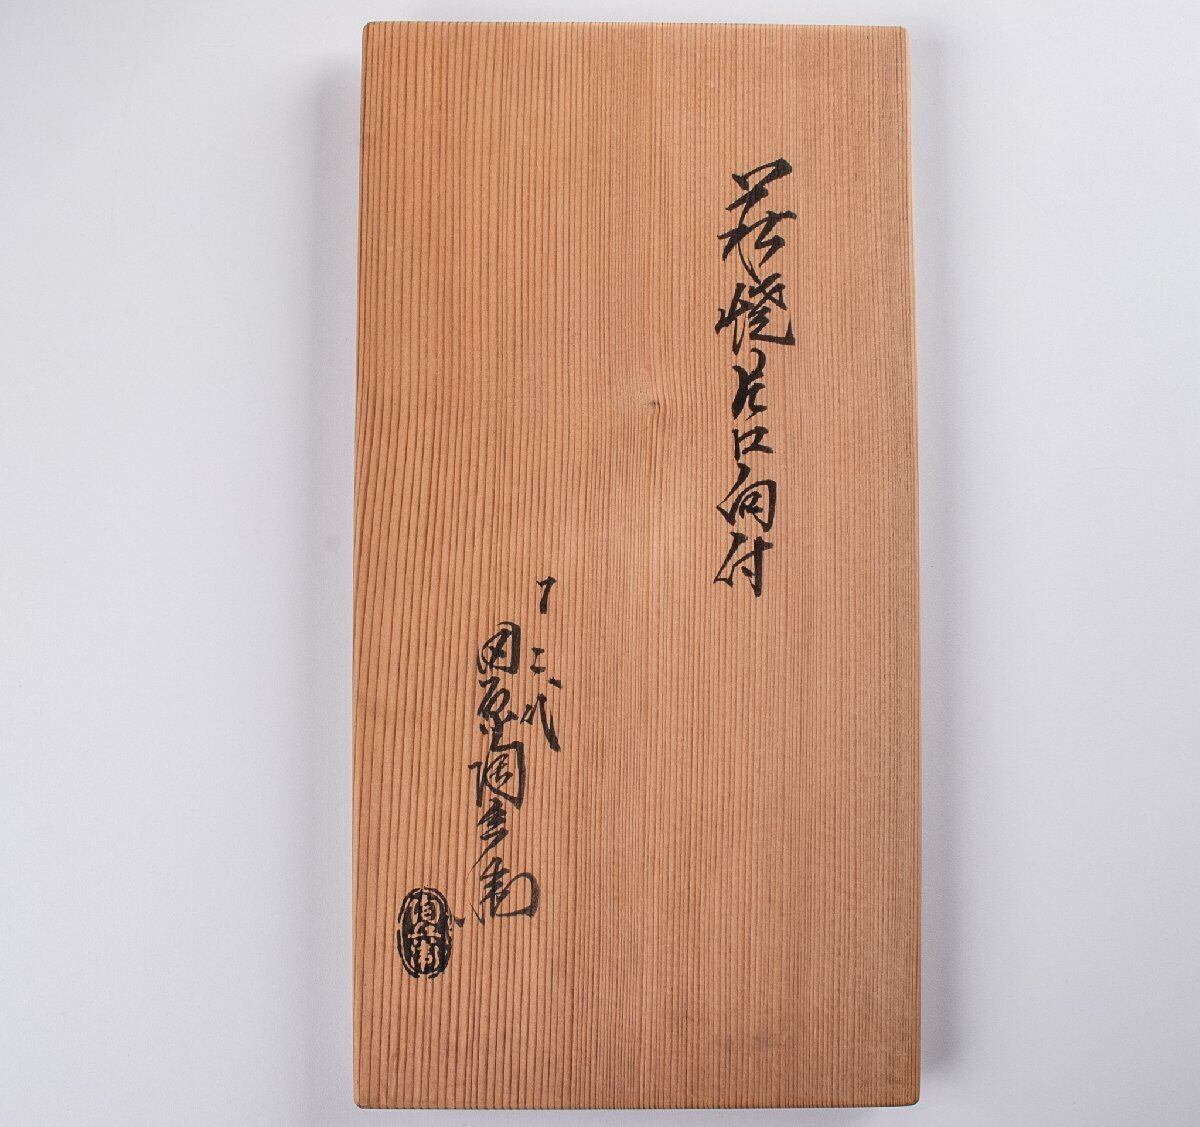 萩焼片口向付
十二代
田原陶兵衛
陶兵衛